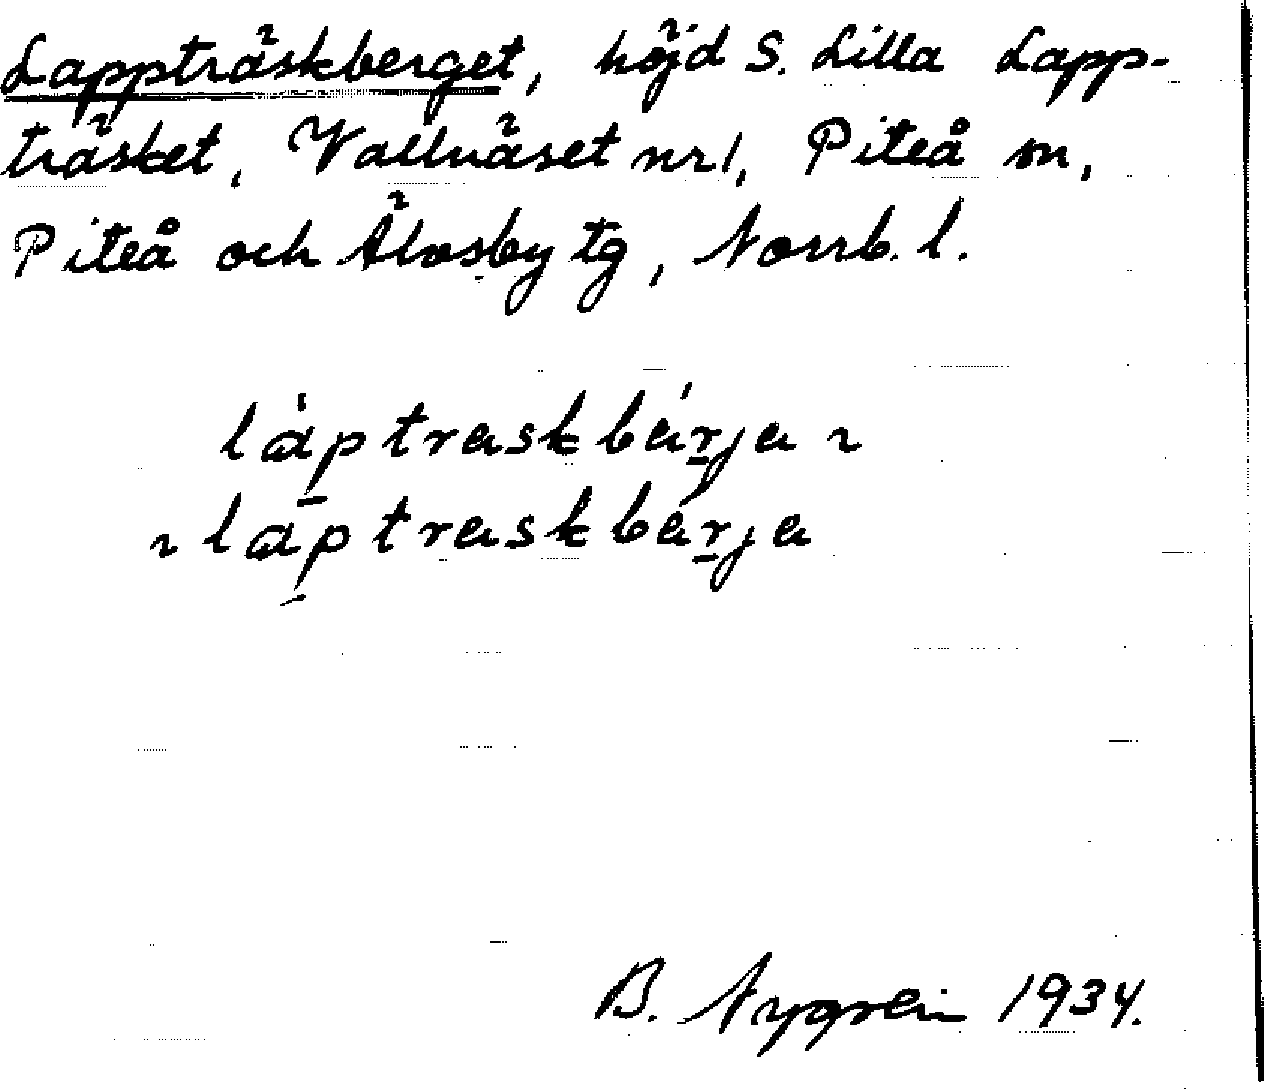 Lappträskberget, höjd S. Lilla Lapp-
träsket, Vallnäset nr 1, Piteå sn,
Piteå och Älvsby tg, Norrb. l.
làptraskbárja ~
~ làptraskbárja
B. Nygren 1934.